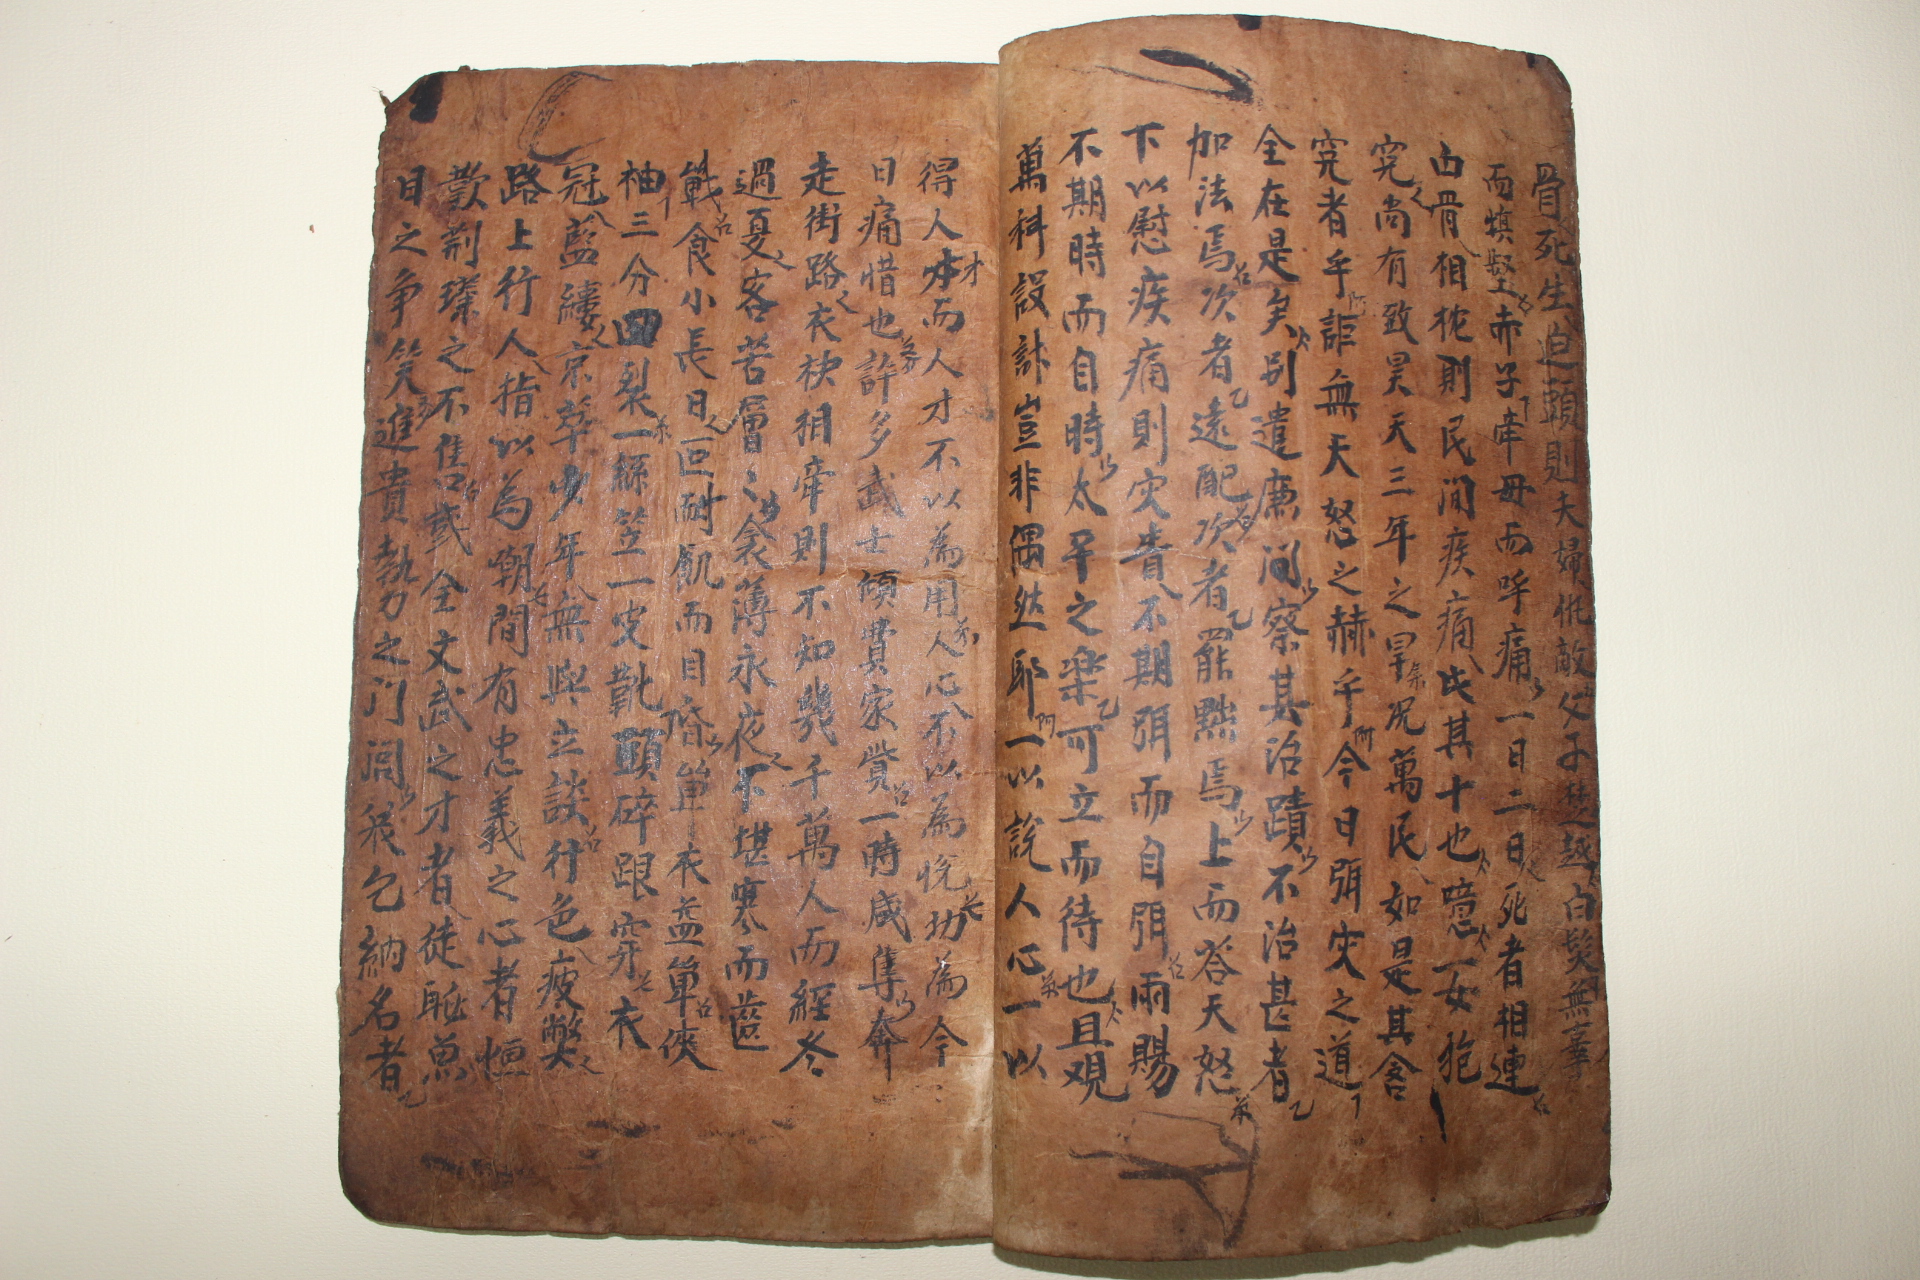 骨死生迫頭則夫婦仇敵父子楚越白髮無辜
而塡壑赤子牽母而呼痛一日二日死者相連
白骨相枕則民間疾痛此其十也噫一女抱
冤尚有致昊天三年之旱況萬民如是其含
冤者乎詎無天怒之赫乎今日弭灾之道
全在是矣別遣廉問察其治蹟不治甚者
加法焉次者遠配次者罷黜焉上而答天怒
下以慰疾痛則灾眚不期弭而自弭雨暘
不期時而自時太平之樂可立而待也且觀
萬科設計豈非偶然耶一以說人心一以
得人才而人才不以為用人心不以為悅功為今
日痛惜也許多武士傾費家貲一時咸隽奔
走街路衣袂相牽則不知幾千萬人而經冬
過夏客苦層〻衾薄永夜不堪寒而齒
戰食小長日叵耐飢而目昏單衣孟單俠
袖三分四裂一絲笠一皮靴頭碎跟穿衣
冠藍縷京萃少年無與立談行色疲獘
路上行人指以為嘲間有忠義之心者恒
歎荊璞之不售或全文武之才者徒恥魚
目之争笑進貴勢之門閭衆乞納名者